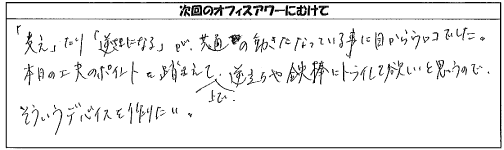 次回のオフィスアワーにむけて
「支え」たり「逆さになる」が、共通の動きとなっている事に目からウロコでした。
本日の工夫のポイントを踏まえて、逆立ちや鉄棒にトライして欲しいと思うので、
上で、
そういうデバイスを作りたい。